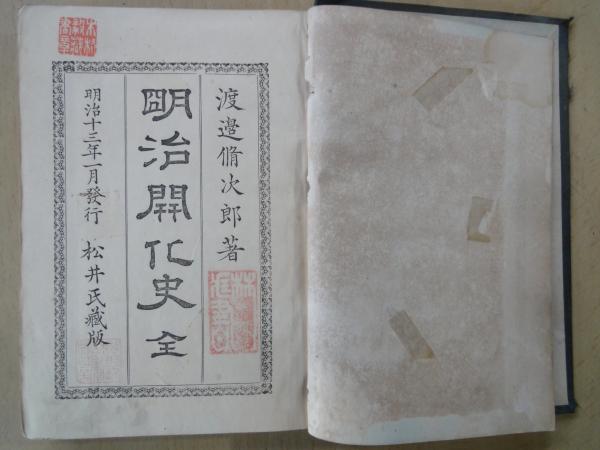 渡邉脩次郎著
明治開化史 全
明治十三年一月發行 松井氏藏版